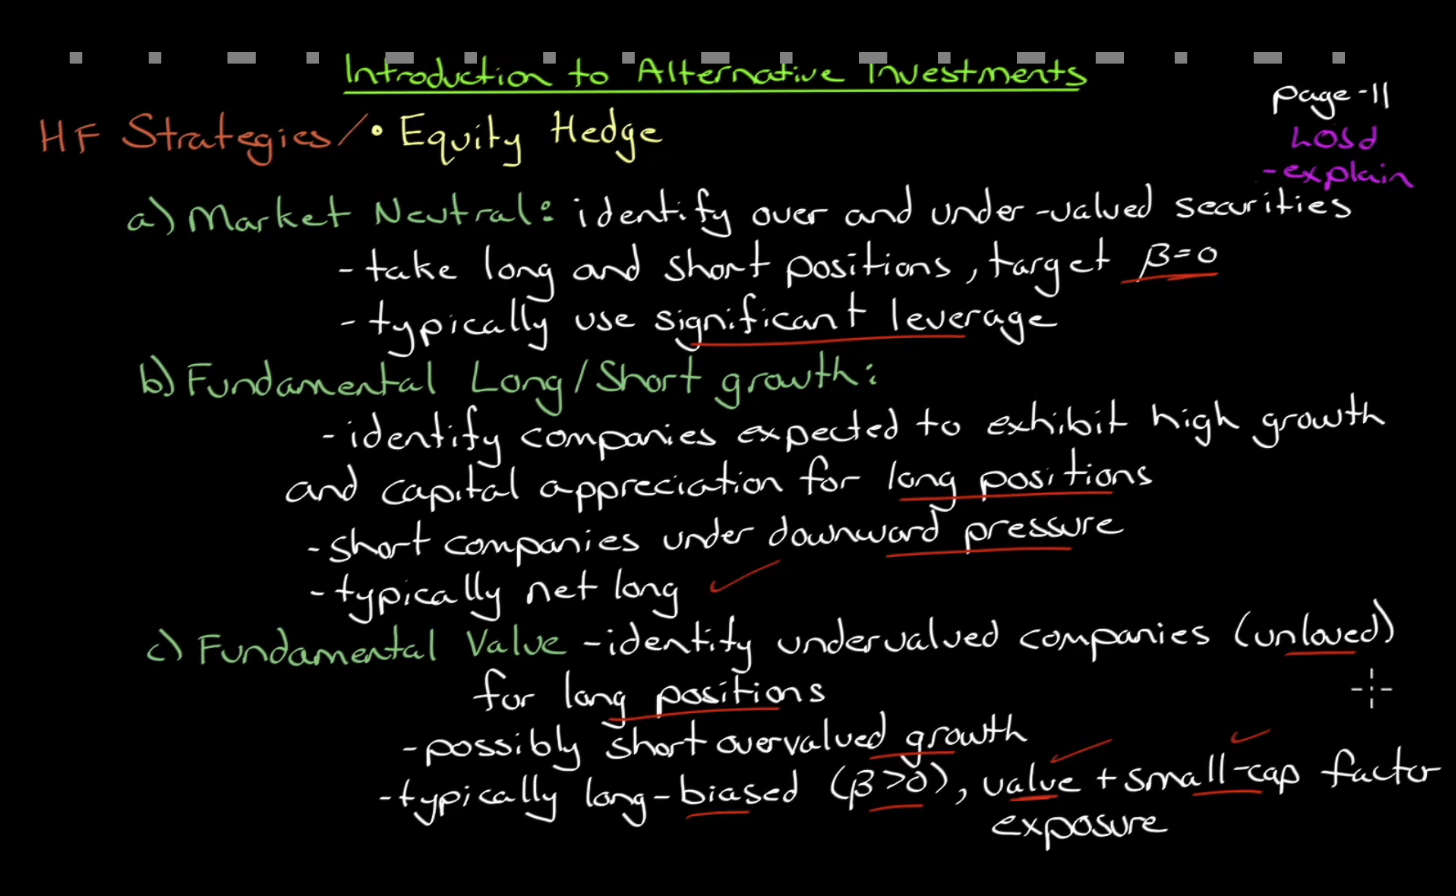 Introduction to Alternative Investments
page-11
LOSd
-explain
HF Strategies/• Equity Hedge
a) Market Neutral: identify over and under-valued securities
-take long and short positions, target β=0
-typically use significant leverage
b) Fundamental Long/Short growth:
-identify companies expected to exhibit high growth
and capital appreciation for long positions
-short companies under downward pressure
-typically net long
c) Fundamental Value -identify undervalued companies (unloved)
for long positions
-possibly short overvalued growth
-typically long-biased (β>0), value + small-cap factor
exposure